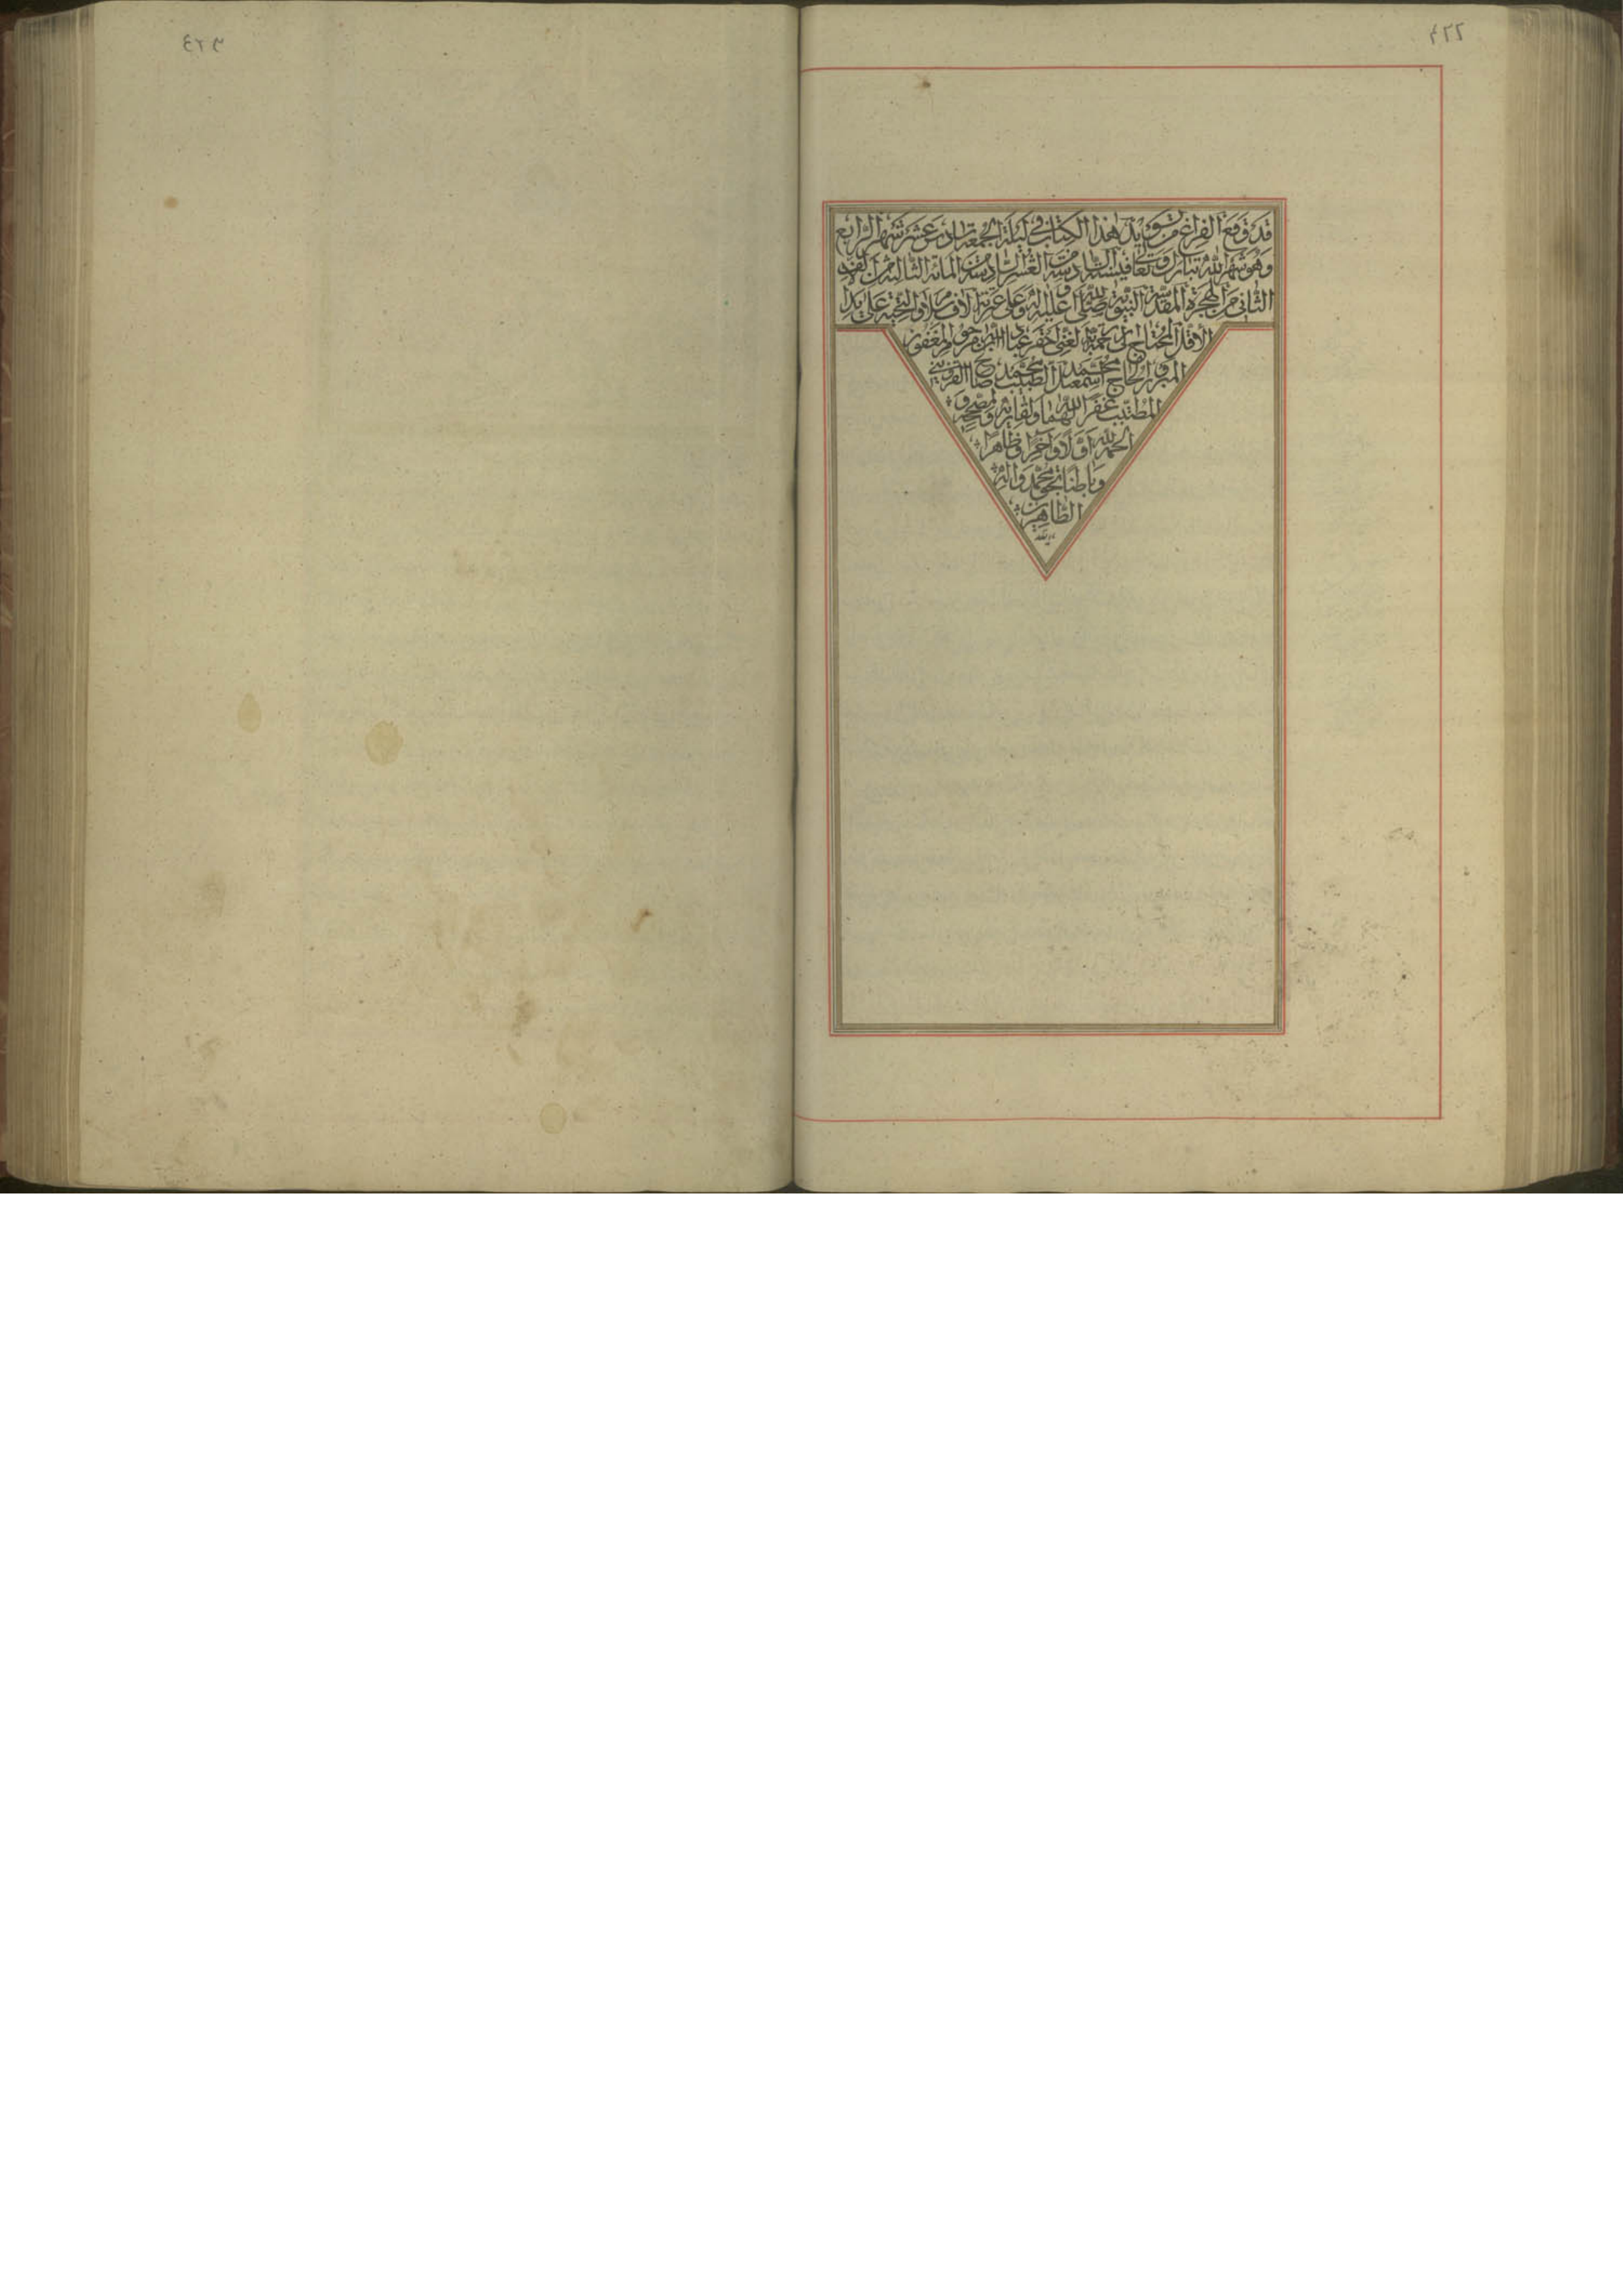 ٤٢٢
قد وقع الفراغ من تسويد هذا الكتاب في ليلة الجمعة سادس عشر شهر الرابع
وهو شهر الله تبارك وتعالى في السنة السادسة من العشر السادسة من المائة الثالثة من الالف
الثاني من الهجرة المقدسة النبوية صلى الله عليه وآله وعلى عترته آلاف سلام والتحية على يد
الأقل المحتاج الى رحمة ربه الغني احقر عباد الله ابن مرحوم المغفور
المبرور الحاج محمد اسمعيل الطبيب محمد صالح القزويني
المتطبب غفر الله لهما ولقاريه ومصححه و
الحمد لله أولا وآخرا وظاهرا
وباطنا بحق محمد وآله
الطاهرين
٤٢٣